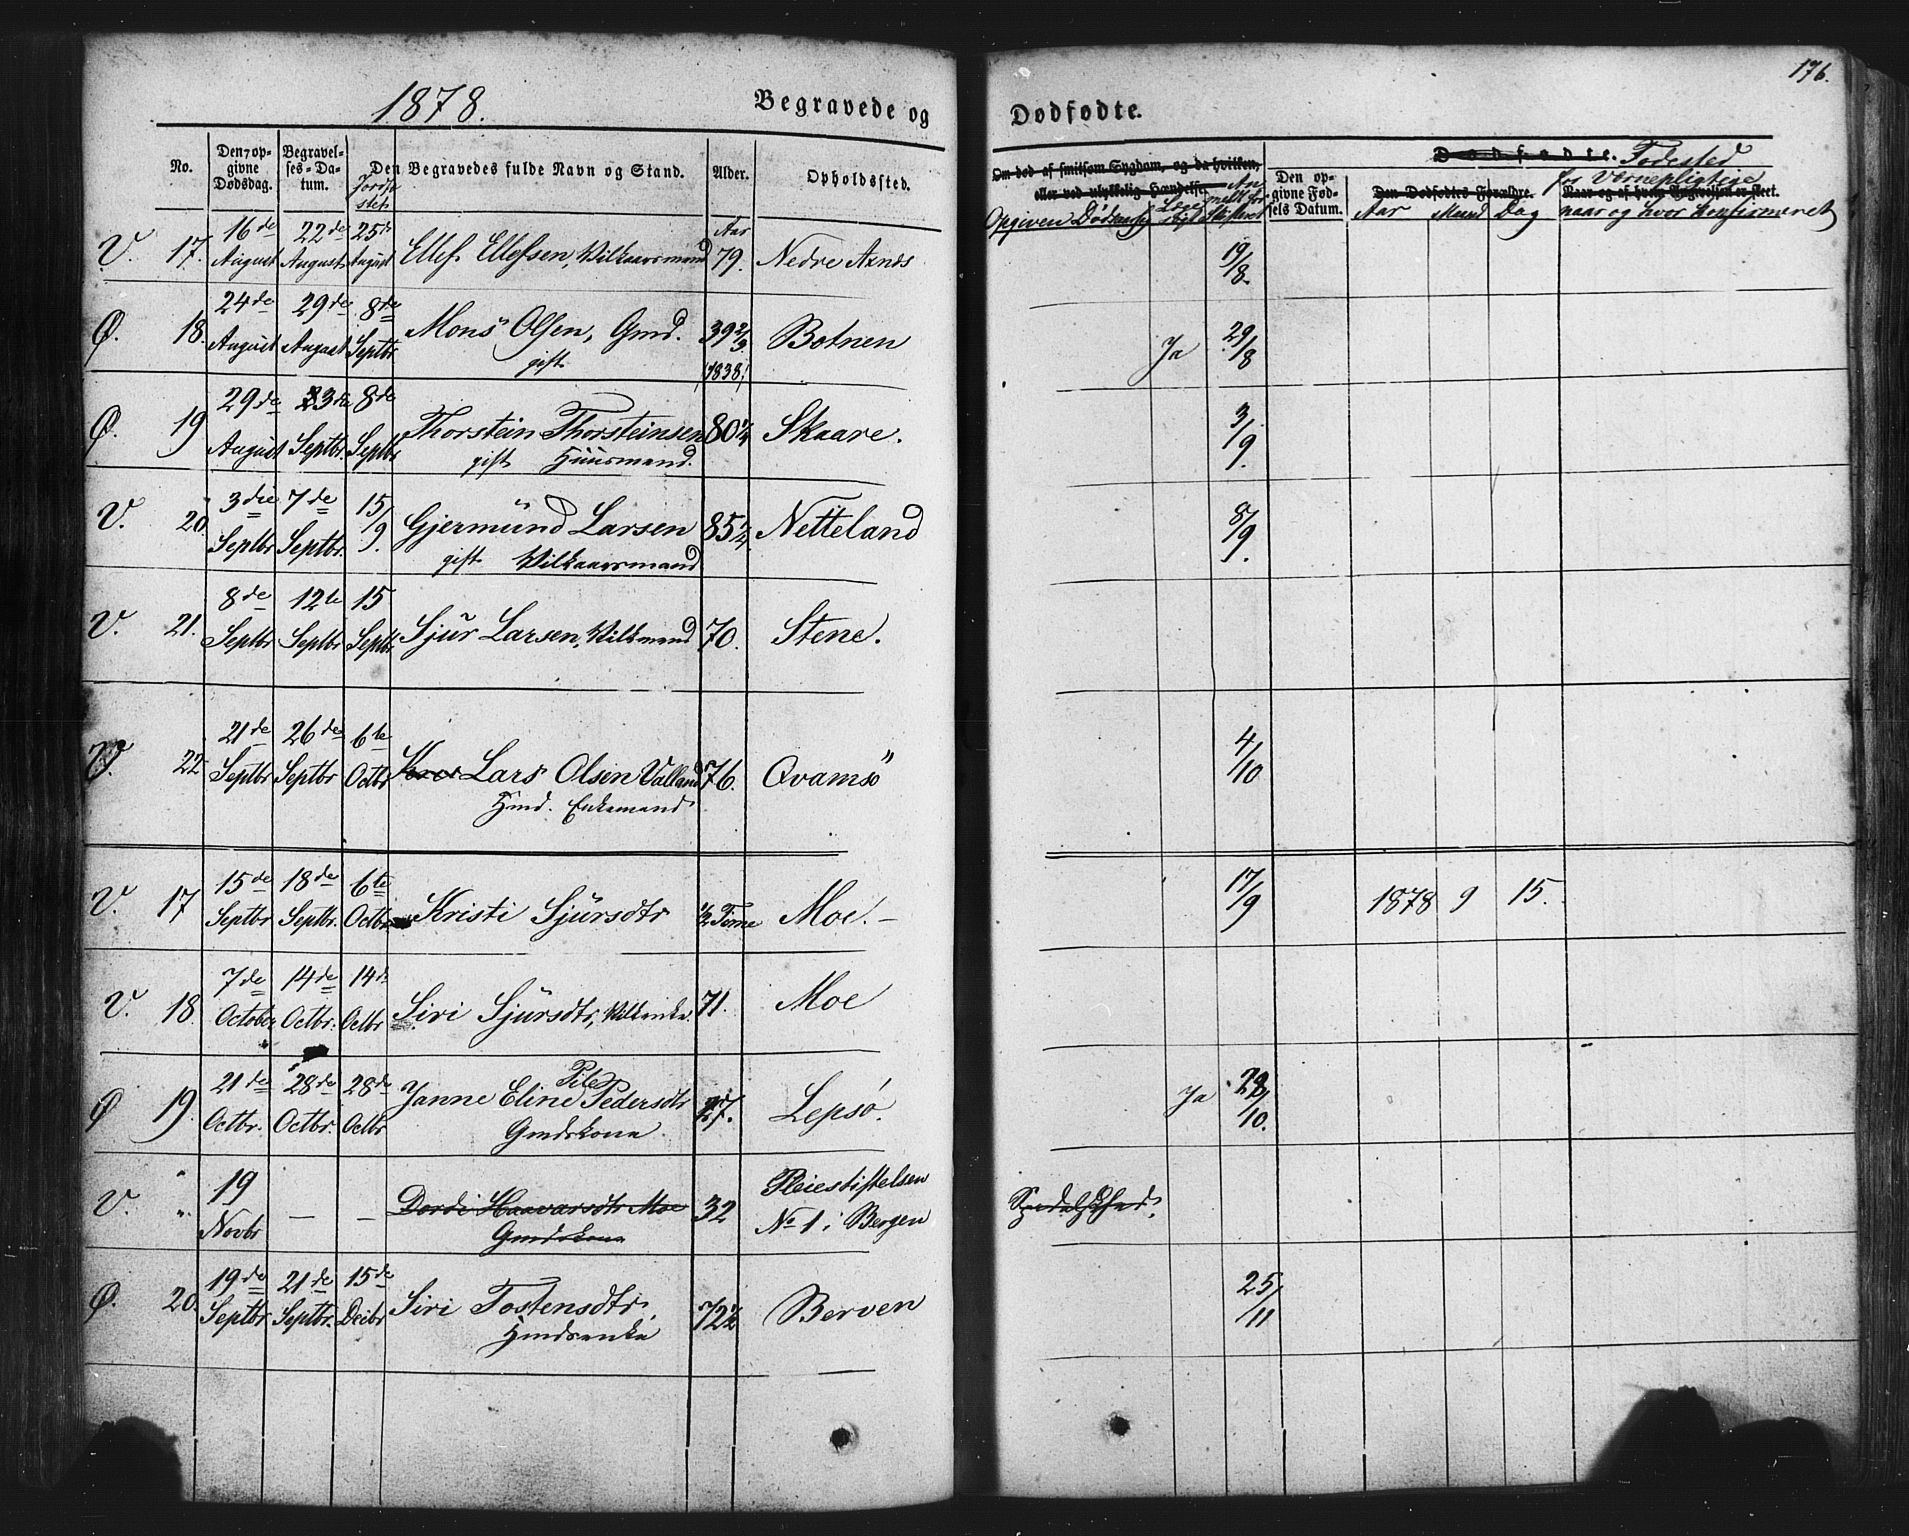 1878. Begravede og Dødfødte. 176.
No. Den opgivne Dødsdag. Begravelses-Datum. Jordfæstet Den Begravedes fulde Navn og Stand. Alder. Opholdssted.
Om død af smitsom Sygdom, og da hvilken, eller ved ulykkelig Hændelse.
Opgiven Dødsaarsag
Den opgivne Fødsels Datum.
Dødfødte. Fødested
Den Dødfødtes Forældre. Naar og af hvem Begravelsen er skeet.
for Værnepligtige
Aar Maaned Dag naar og hvor Konfirmeret
V. 17. 16de August 22de August 25de August Ellef Ellefsen, Vilkaarsmand Aar 79. Nedre Axnæs 19/8.
Ø. 18. 24de August 29de August 8de Septbr Mons Olsen, Gmd. 39 2/3 Botnen Ja 29/8
gift (1838)
Ø. 19 29de August 3die Septbr 8de Septbr Thorstein Thorsteinsen 80 1/4 Skaare. 3/9.
gift Huusmand.
V. 20. 3die Septbr 7de Septbr. 15/9. Gjermund Larsen 85 1/4 Netteland 8/9.
gift Vilkaarsmand
V. 21. 8de Septbr 12te Septbr 15 Septbr Sjur Larsen, Vilkmand 70. Stene.
V. 22 21de Septbr 26de Septbr 6te Octbr Lars Olsen Valland 76. Qvamsø 4/10
Hmd. Enkemand
V. 17 15de Septbr 18de Septbr. 6te Octbr Kristi Sjursdtr 1/2 Time Moe.- 17/9 1878 9 15.
V. 18. 7de October 14de Octbr. 14de Octbr Siri Sjursdtr, Vilkenke 71. Moe
Ø 19. 21de Octbr. 28de Octbr. 28de Octbr Janne Eline Pedersdtr 27. Lepsø. Ja 28/10.
Gmdskona.
V. " 19 Novbr — — Dordi Haavarsdtr Moe 32 Pleiestiftelsen No 1 i Bergen Spedalskhed.
Gmdskona
Ø. 20. 19de Septbr 21de Septbr. 15de Decbr Siri Tostensdtr, 72 1/2 Berven 25/11
Hmdsenke